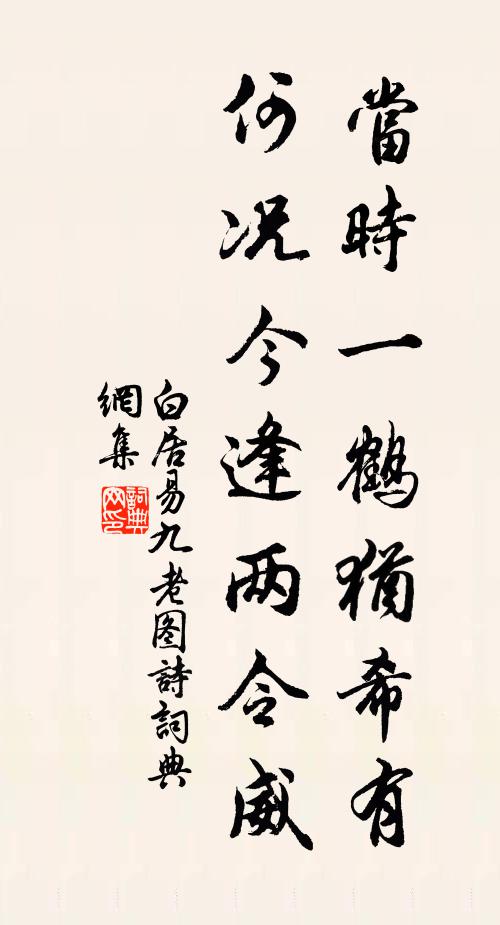 當時一鶴猶希有
何况今逢两令威
白居易九老图詩詞典
網集
詞典
网印